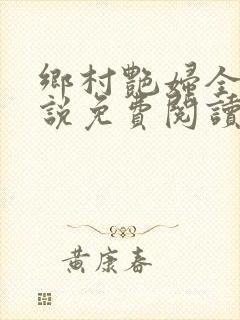 鄉村艷婦全
說免費閱讀
黃康春